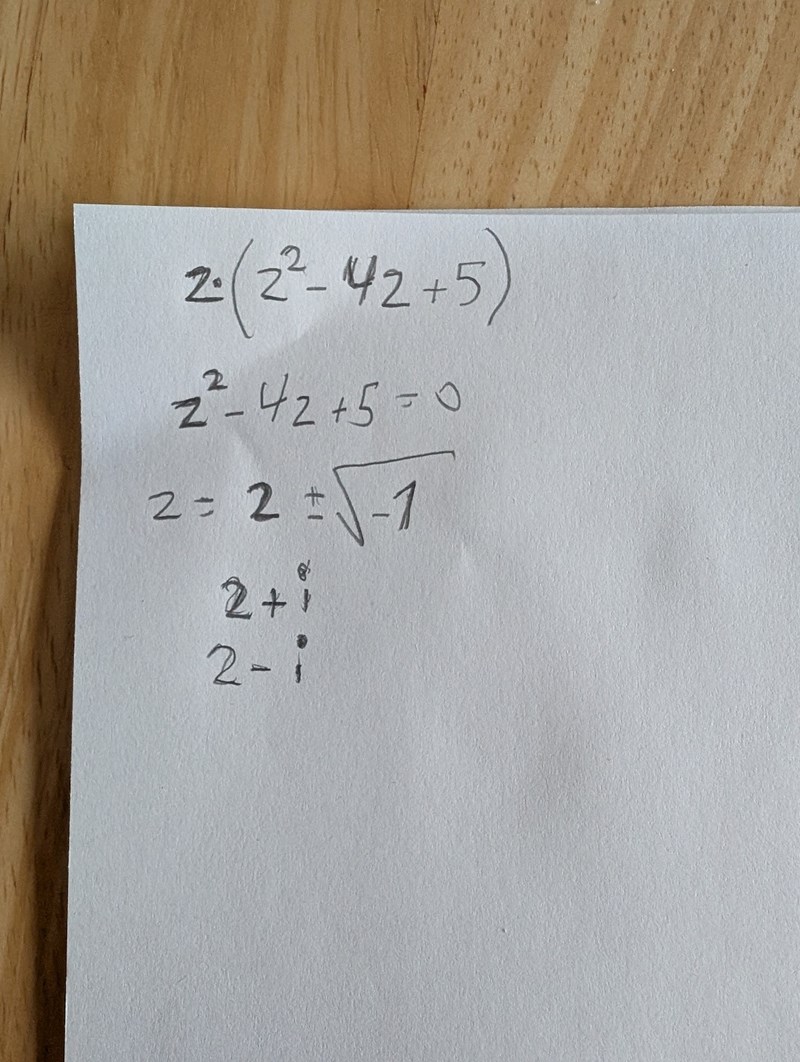 z·(z² - 4z + 5)
z² - 4z + 5 = 0
z = 2 ± √-1
2 + i
2 - i